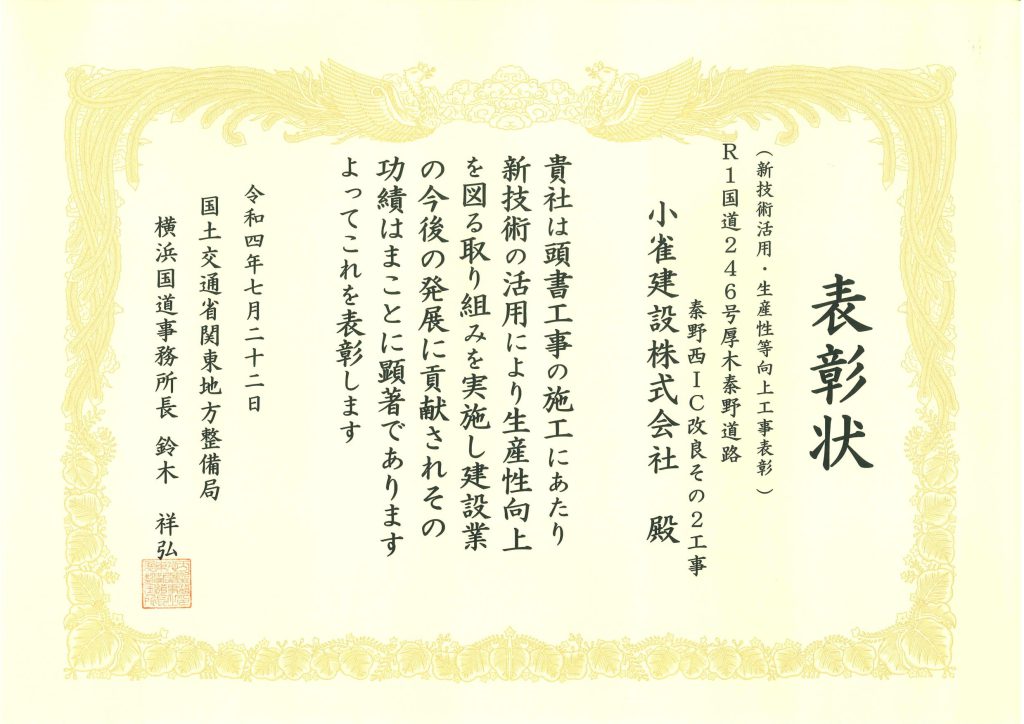 表彰状
（新技術活用・生産性等向上工事表彰）
R1国道246号厚木秦野道路
秦野西IC改良その2工事
小雀建設株式会社 殿
貴社は頭書工事の施工にあたり
新技術の活用により生産性向上
を図る取り組みを実施し建設業
の今後の発展に貢献されその
功績はまことに顕著であります
よってこれを表彰します
令和四年七月二十二日
国土交通省関東地方整備局
横浜国道事務所長 鈴木 祥弘